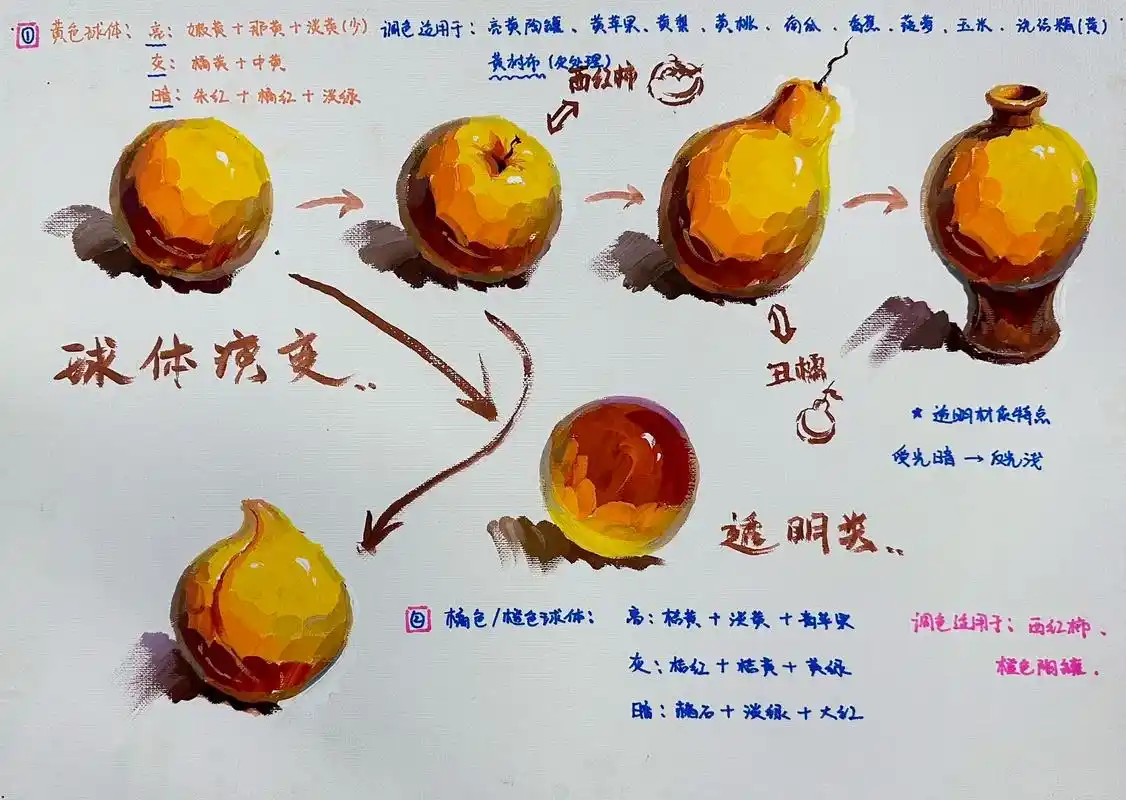 ① 黄色球体：亮：嫩黄＋那黄＋淡黄(少)
灰：橘黄＋中黄
暗：朱红＋橘红＋淡绿
调色适用于：亮黄陶罐、黄苹果、黄梨、黄桃、南瓜、香蕉、菠萝、玉米、洗洁精(黄)
黄衬布(灰处理)
西红柿
球体演变..
丑橘
* 透明材质特点
受光暗→反光浅
透明类..
② 橘色/橙色球体：亮：桔黄＋淡黄＋青苹果
灰：桔红＋桔黄＋黄绿
暗：赭石＋淡绿＋大红
调色适用于：西红柿、
橙色陶罐.